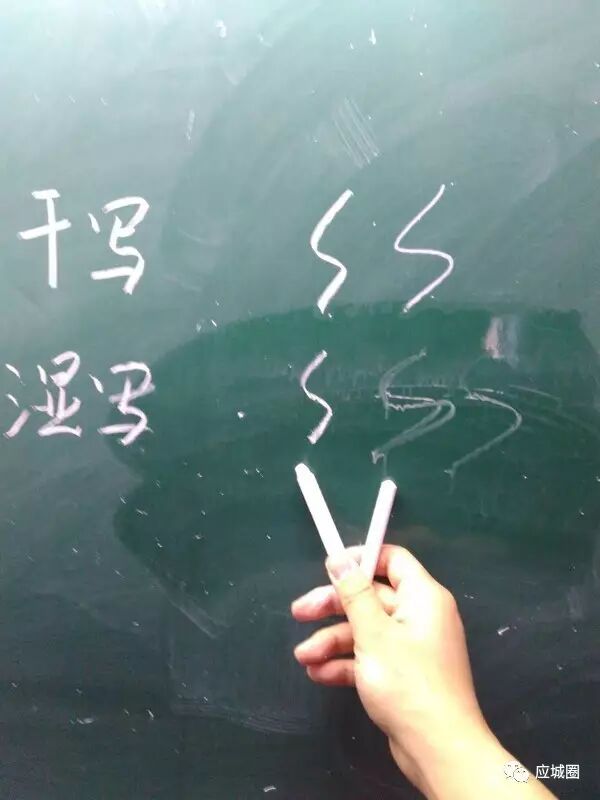 干写
湿写
应城圈